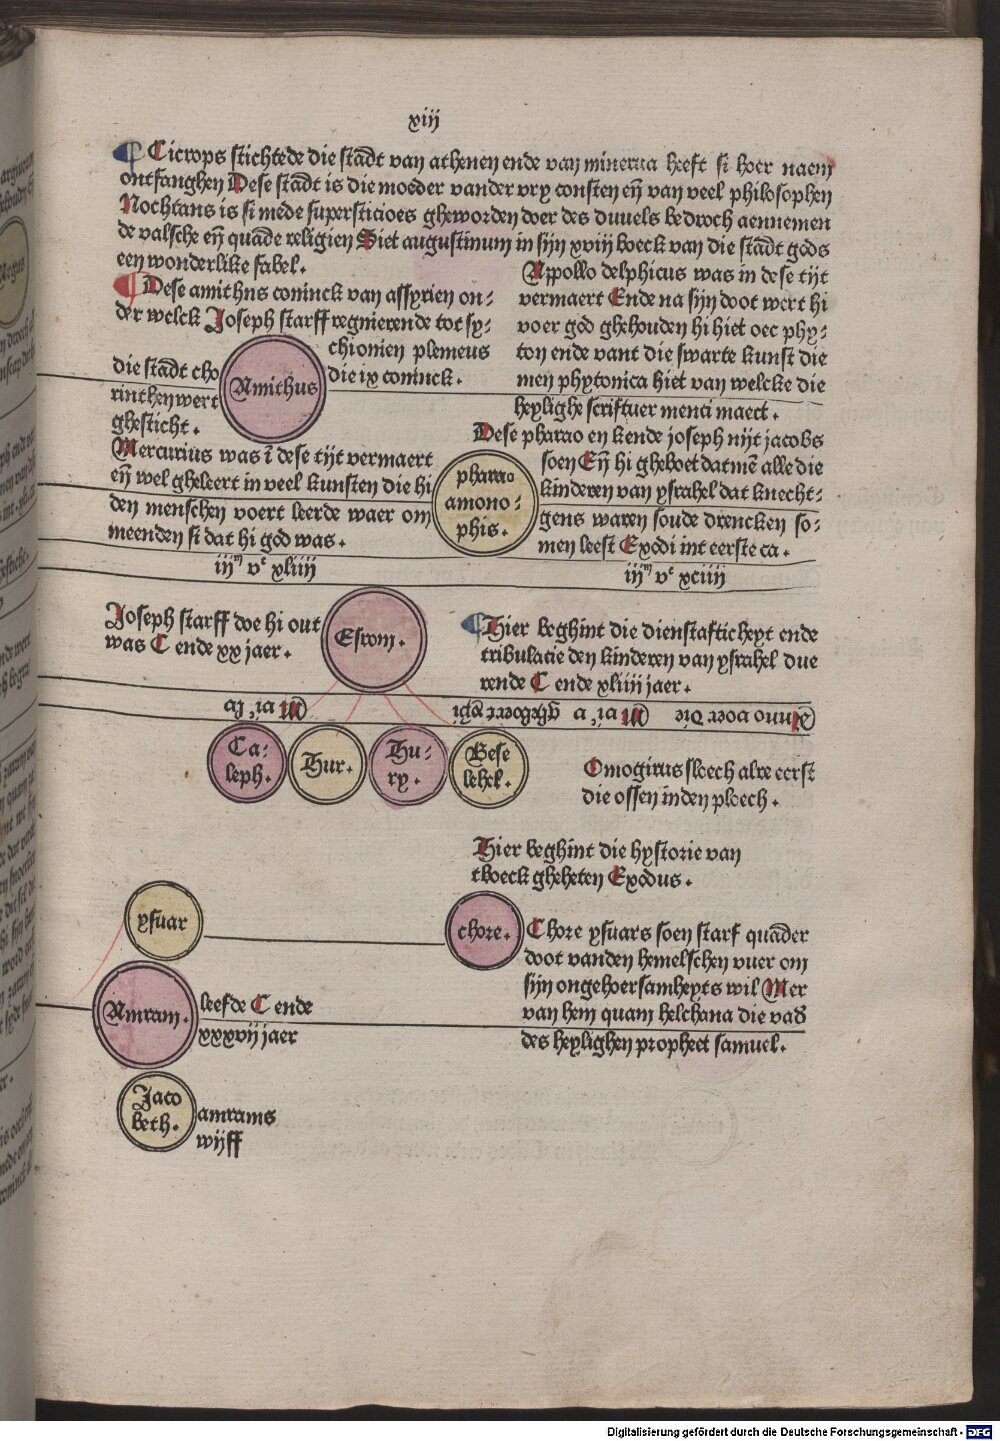 xiij
Cicrops stichtede die stadt van athenen ende van minerua heeft si hoer naem
ontfanghen Dese stadt is die moeder vander vry consten eñ van veel philosophen
Nochtans is si mede supersticioes gheworden doer des duuels bedroch aennemen
de valsche eñ quade religien Siet augustinum in sijn xviij boeck van die stadt gods
een wonderlike fabel.
Dese amithus coninck van assyrien on-
der welck Joseph starff regnierende tot sy-
chionien plemeus
die ix coninck.
die stadt cho
rinthen wert
ghesticht.
Amithus
Appollo delphicus was in dese tijt
vermaert Ende na sijn doot wert hi
voer god ghehouden hi hiet oec phy-
ton ende vant die swarte kunst die
men phytonica hiet van welcke die
heylighe scriftuer menci maect.
Mercurius was ī dese tijt vermaert
eñ wel gheleert in veel kunsten die hi
den menschen voert leerde waer om
meenden si dat hi god was.
pharao
amono-
phis.
Dese pharao en kende joseph nijt jacobs
soen Eñ hi gheboet datmē alle die
kinderen van ysrahel dat knecht-
gens waren soude drencken so-
men leest Exodi int eerste ca.
iijᵐ vᶜ xliiij
iijᵐ vᶜ xciiij
Joseph starff doe hi out
was C ende xx jaer.
Esrom.
Hier beghint die dienstafticheyt ende
tribulatie den kinderen van ysrahel due
rende C ende xliiij jaer.
Anno voer die
Ca-
leph.
Hur.
Hu-
ry.
Bese
lehel.
Omogirus sloech alre eerst
die ossen inden ploech.
Hier beghint die hystorie van
tboeck gheheten Exodus.
ysuar
chore.
Chore ysuars soen starf quader
doot vanden hemelschen vuer om
sijn ongehoersamheyts wil Mer
van hem quam helchana die vad
des heylighen propheet samuel.
Amram.
leefde C ende
xxxvij jaer
Jaco
beth.
amrams
wijff
Digitalisierung gefördert durch die Deutsche Forschungsgemeinschaft - DFG